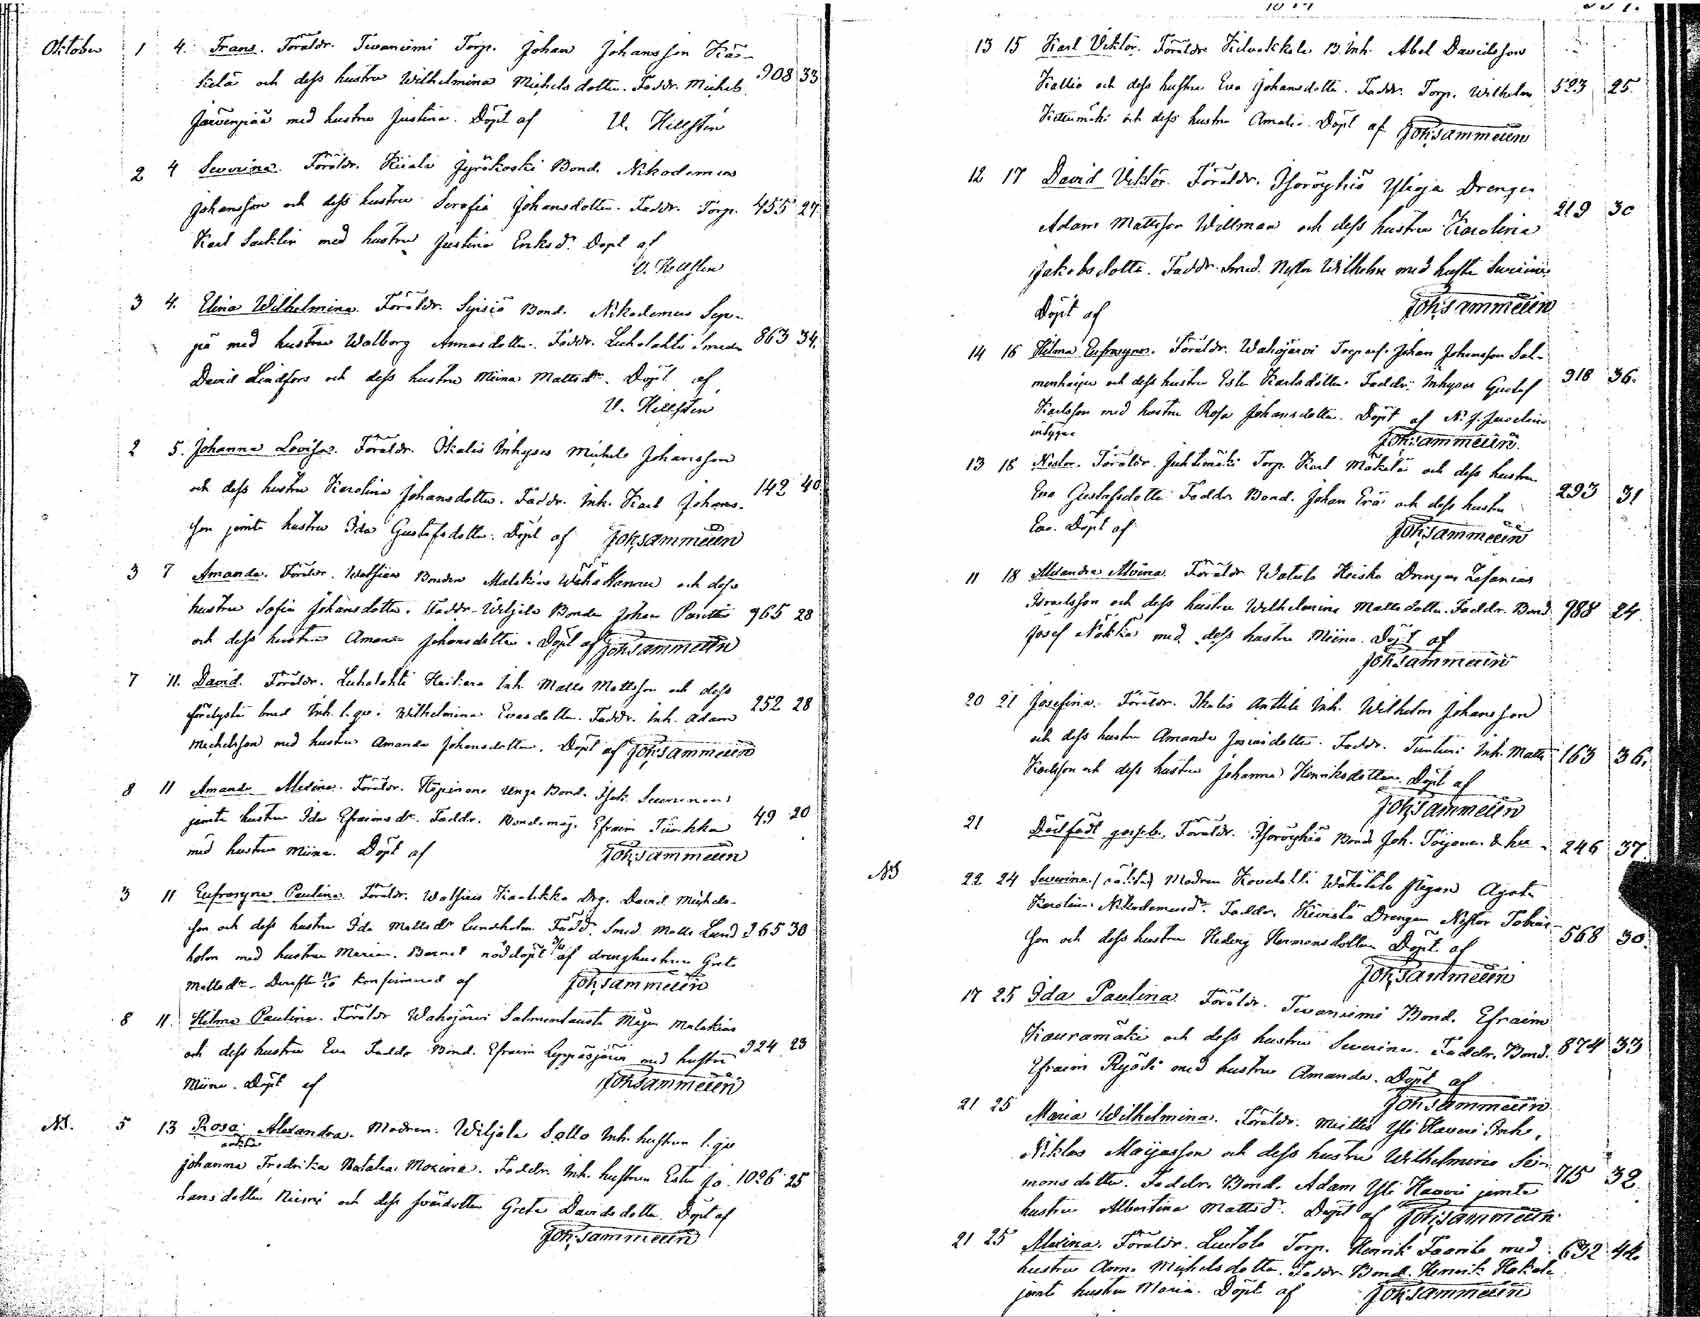 Oktober 1 4. Frans. Föräldr. Tevaniemi Torp. Johan Johansson Kas-
kelä och dess hustru Wilhelmina Michelsdotter. Faddr. Michel 908 33
Järvenpää med hustru Justina. Döpt af V. Hellsten
2 4 Severina. Föräldr. Kiiala Jyräkoski Bond. Nikodemus
Johansson och dess hustru Serafia Johansdotter. Faddr. Torp. 455 27.
Karl Sacklin med hustru Justina Eriksdr. Döpt af
V. Hellsten
3 4. Elina Wilhelmina. Föräldr. Sipsiö Bond. Nikodemus Sep-
pä med hustru Walborg Annasdotter. Faddr. Luhalahti Smeden 863 34.
David Lindfors och dess hustru Miina Mattsdr. Döpt af
V. Hellsten
2 5. Johanna Lovisa. Föräldr. Ikalis Inhyses Michel Johansson
och dess hustru Karolina Johansdotter. Faddr. Inh. Karl Johans- 142 40.
son jemte hustru Ida Gustafsdotter. Döpt af Joh. Sammelin
3 7 Amanda. Föräldr. Bonden Malakias Wähä Hannu och dess
hustru Sofia Johansdotter. Faddr. Wiljala Bonden Johan 965 28
och dess hustru Amanda Johansdotter. Döpt af Joh. Sammelin
7 11. David. Föräldr. Luhalahti Heikkra Inh. Matts Mattsson och dess
med Inh. l. qv. Wilhelmina Evasdotter. Faddr. Inh. Adam 252 28
Michelsson med hustru Amanda Johansdotter. Döpt af Joh. Sammelin
8 11 Amanda Alexina. Föräldr. Unga Bond. Isak
jemte hustru Ida Efraimsdr. Faddr. Bondemåg. Efraim 49 20
med hustru Miina. Döpt af Joh. Sammelin
3 11 Eufrosyne Paulina. Föräldr. Drg. David Michels-
son och dess hustru Ida Mattsdr Lundholm. Faddr. Smed. Matts Lund 265 30
holm med hustru Maria. Barnet nöddöpt af drenghustrun Greta
Mattsdr. konfirmerad af Joh. Sammelin
8 11. Hilma Paulina. Föräldr. Wahojärvi Salmentausta Mågen Malakias
och dess hustru Eva. Faddr. Bond. Efraim Leppäsjärvi med hustru 924 23
Miina. Döpt af Joh. Sammelin
N3. 5 13 Rosa Alexandra. Modren: Wiljala Salo Inh. hustrun l. qv.
oäkta
Johanna Fredrika Natalia. Faddr. Inh. hustrun Ester Jo- 1026 25
hansdotter Niemi och dess Greta Davidsdotter. Döpt af
Joh. Sammelin
13 15 Karl Viktor. Föräldr. B. Inh. Abel Davidsson
Kallio och dess hustru Eva Johansdotter. Faddr. Torp. Wilhelm 523 25.
och dess hustru Amalia. Döpt af Joh. Sammelin
12 17 David Viktor. Föräldr. Osoröykiö Ylioja Drengen
Adam Mattsson Willman och dess hustru Karolina 219 30
Jakobsdotter. Faddr. Smed. Nestor Wilhelm med hustru
Döpt af Joh. Sammelin
14 16 Hilma Eufrosyne. Föräldr. Wahojärvi Johan Johansson Sal-
och dess hustru Ester Karlsdotter. Faddr. Inhyses Gustaf 918 36.
Karlsson med hustru Rosa Johansdotter. Döpt af N. J.
intygar Joh. Sammelin
13 18 Nestor. Föräldr. Juhtimäki Torp. Karl Mäkelä och dess hustru
Eva Gustafsdotter. Faddr. Bond. Johan Erä och dess hustru 293 31
Eva. Döpt af Joh. Sammelin
11 18 Alexandra Alvina. Föräldr. Watula Heiska Drengen Zefanias
Israelsson och dess hustru Wilhelmina Mattsdotter. Faddr. Bond. 988 24.
Josef med dess hustru Miina. Döpt af
Joh. Sammelin
20 21 Josefina. Föräldr. Ikalis Anttila Inh. Wilhelm Johansson
och dess hustru Amanda Josiasdotter. Faddr. Inh. Matts 163 36.
Karlsson och dess hustru Johanna Henriksdotter. Döpt af
Joh. Sammelin
21 Dödfödt gossebn. Föräldr. Osoröykiö Bond. Joh. & hu 246 37.
N3 22 24 Severina (oäkta) Modren Kovelahti Pigan Agata
Karolina Nikodemusdr. Faddr. Drengen Nestor Tobias-
son och dess hustru Hedvig Hermansdotter. Döpt af 568 30.
Joh. Sammelin
17 25 Ida Paulina. Föräldr. Tevaniemi Bond. Efraim
Kauramäki och dess hustru Severina. Faddr. Bond. 874 33
Efraim Ryödi med hustru Amanda. Döpt af
Joh. Sammelin
21 25 Maria Wilhelmina. Föräldr. Yli Haveri Inh.
Niklas och dess hustru Wilhelmina Si-
monsdotter. Faddr. Bond. Adam Yli Haveri jemte 715 32.
hustru Albertina Mattsd. Döpt af Joh. Sammelin
21 25 Alexina. Föräldr. Torp. Henrik med 632 44.
hustru Anna Michelsdotter. Faddr. Bond. Henrik
jemte hustru Maria. Döpt af Joh. Sammelin